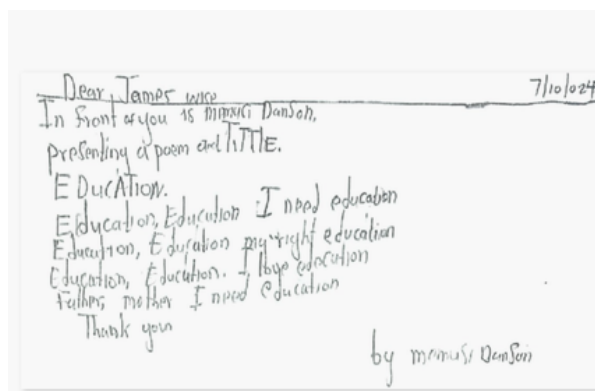 Dear, James wise 7/10/024
In front of you is mamusi Danson,
presenting a poem and TITTLE.
EDUCATION.
Education, Education I need education
Education, Education my right education
Education, Education. I love education
Father, mother I need education
Thank you
by mamusi Danson